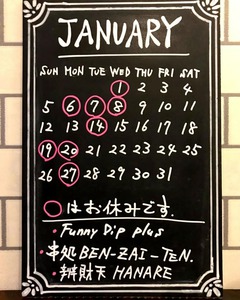 JANUARY
SUN MON TUE WED THU FRI SAT
1 2 3 4
5 6 7 8 9 10 11
12 13 14 15 16 17 18
19 20 21 22 23 24 25
26 27 28 29 30 31
○はお休みです.
・Funny Dip plus
・串処 BEN-ZAI-TEN.
・辨財下 HANARE